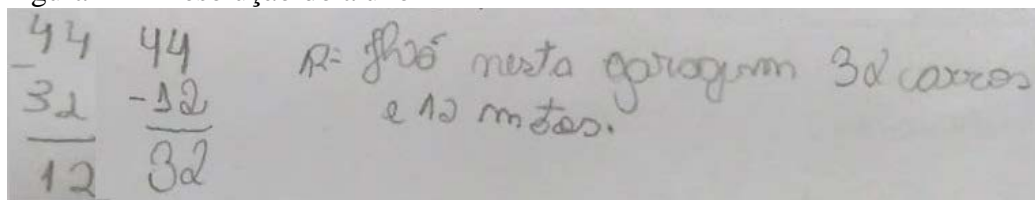 44 44
- 32 -12
12 32
R= Há nesta garagem 32 carros
e 12 motos.